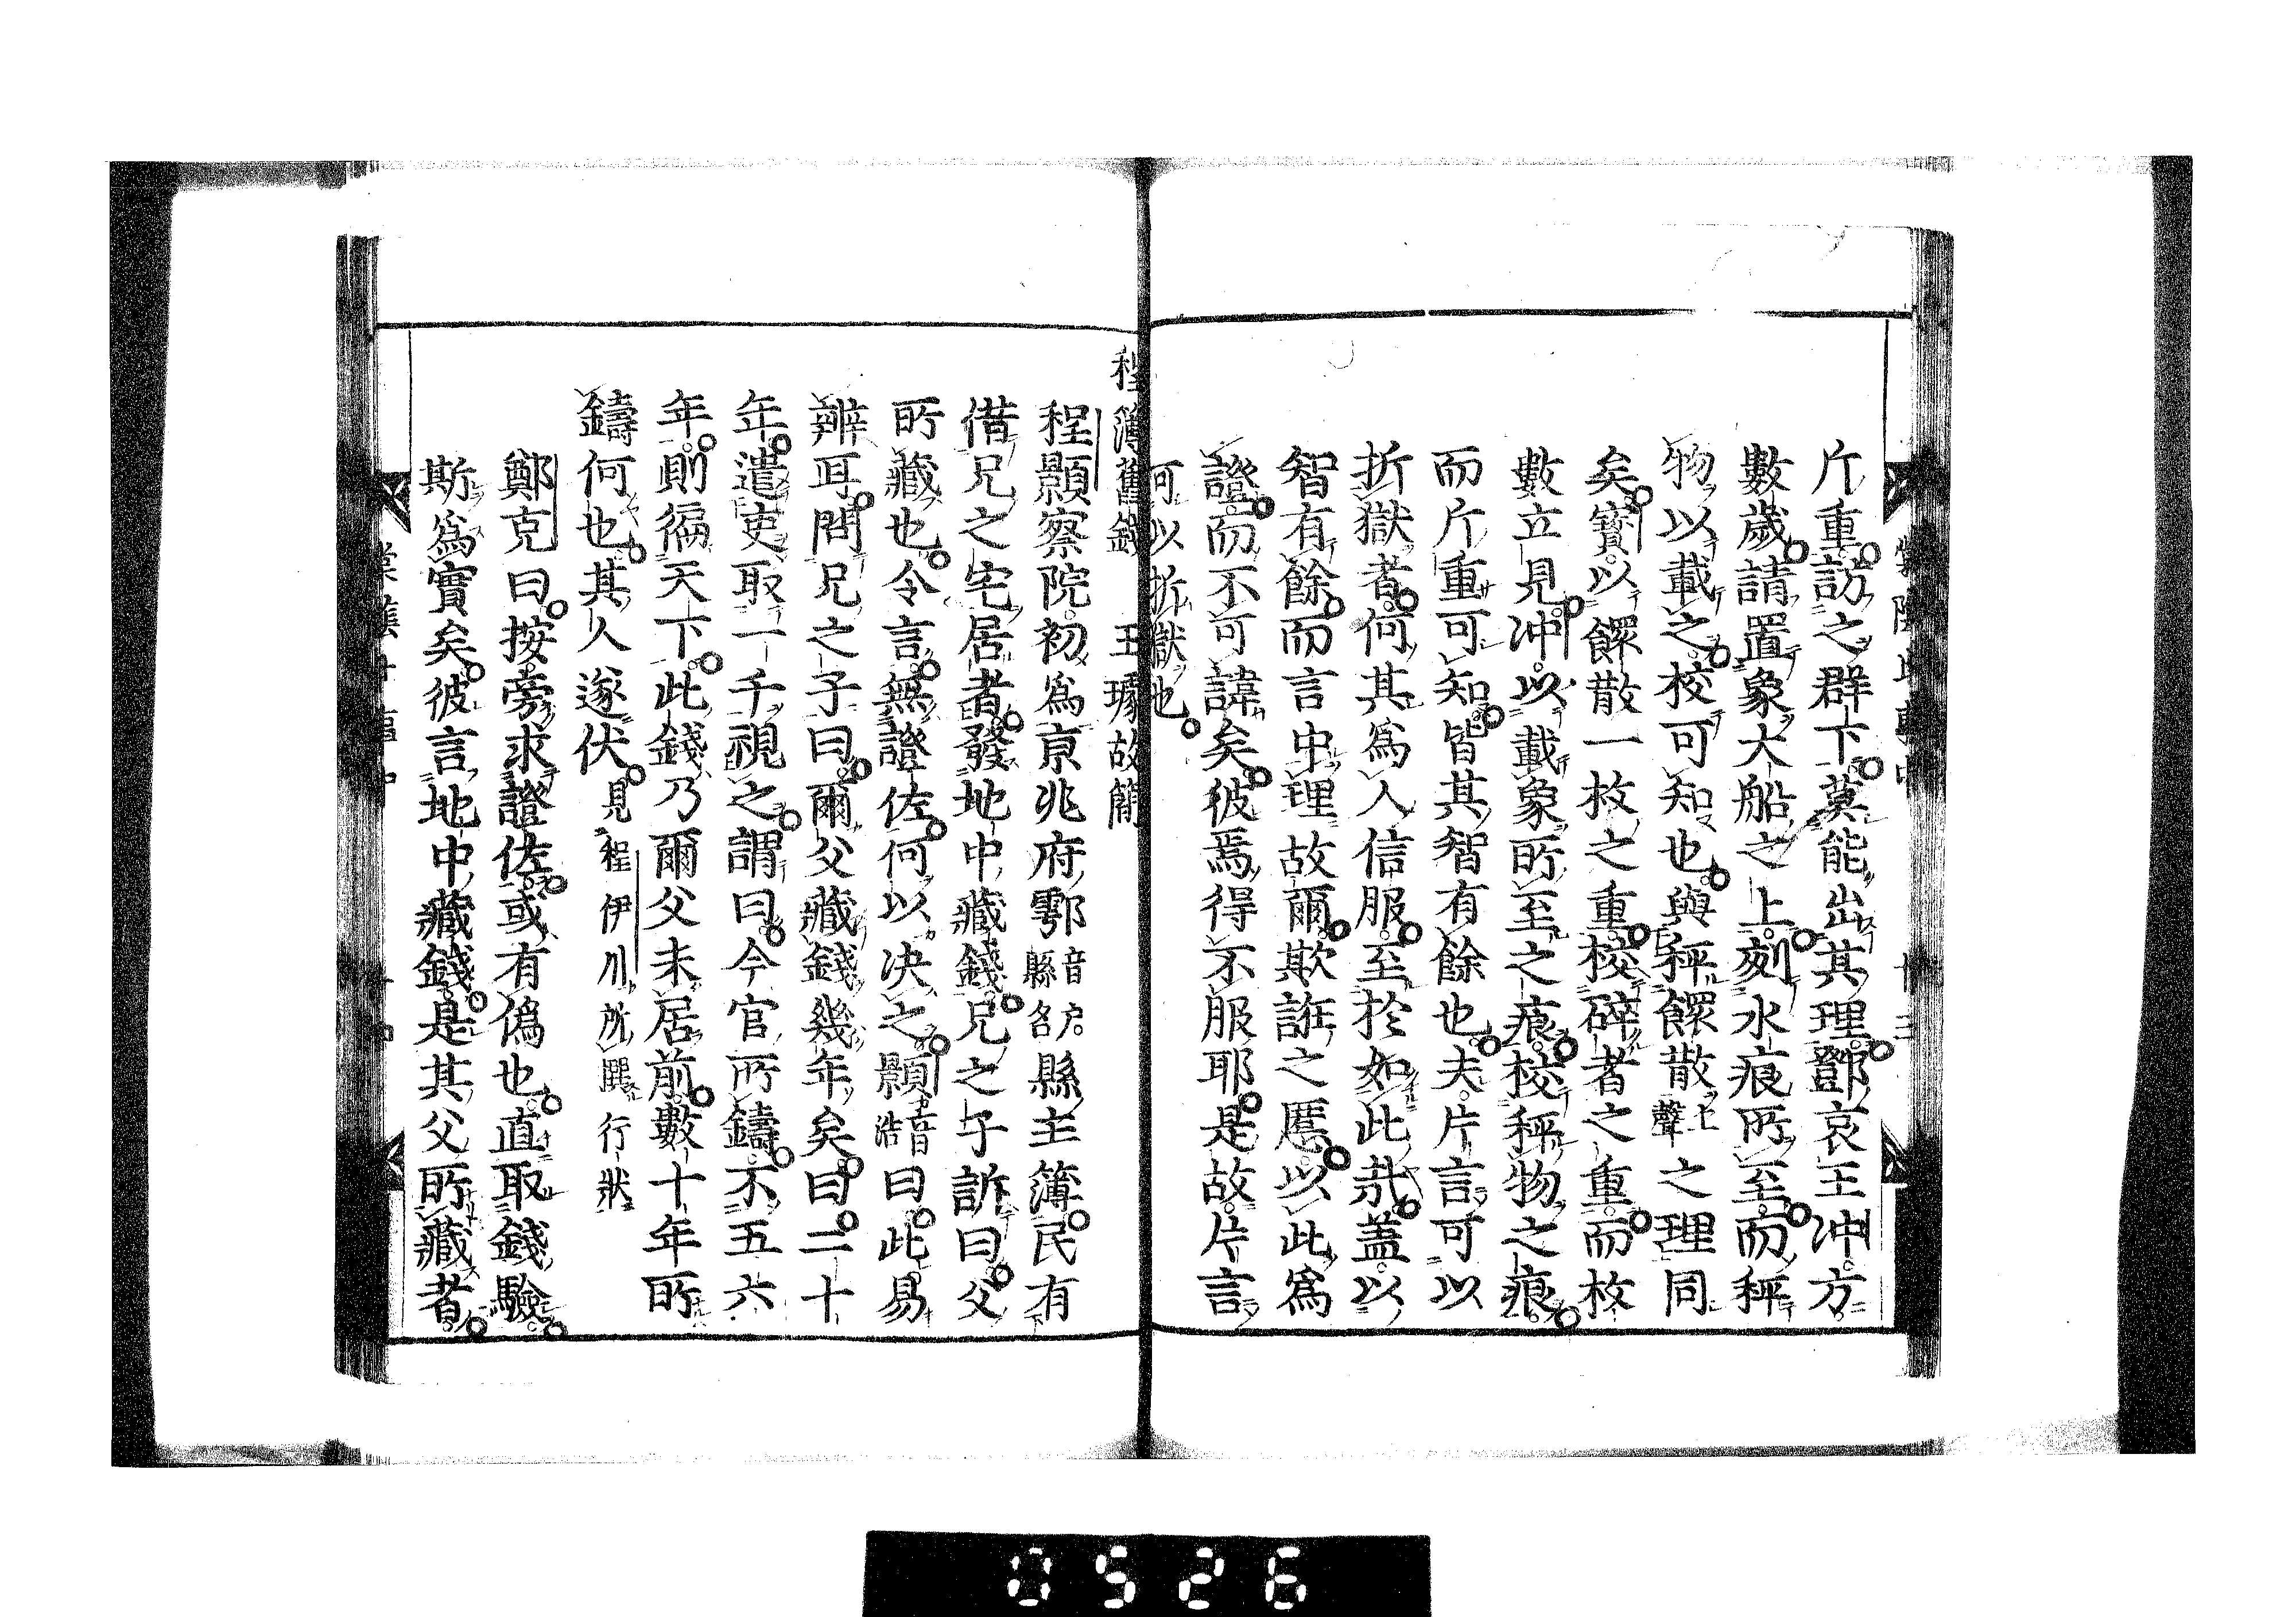 斤重訪之群下莫能出其理鄧哀王沖方
數歲請置象大船之上刻水痕所至而秤
物以載之校可知也與秤鐶散上聲之理同
矣寶以鐶散一枚之重校碎者之重而枚
數立見沖以載象所至之痕校秤物之痕
而斤重可知皆其智有餘也夫片言可以
折獄者何其爲人信服至於如此哉蓋以
智有餘而言中理故爾欺誑之慝以此爲
證而不可諱矣彼焉得不服耶是故片言
可以折獄也
程簿舊錢　王璩故簡
程顥察院初爲京兆府鄠音户縣名縣主簿民有
借兄之宅居者發地中藏錢兄之子訴曰父
所藏也令言無證佐何以决之顥音浩曰此易
辨耳問兄之子曰爾父藏錢幾年矣曰二十
年遣吏取一千視之謂曰今官所鑄不五六
年則徧天下此錢乃爾父未居前數十年所
鑄何也其人遂伏見程伊川所譔行状
鄭克曰按旁求證佐或有僞也直取錢驗
斯爲實矣彼言地中藏錢是其父所藏者
0526